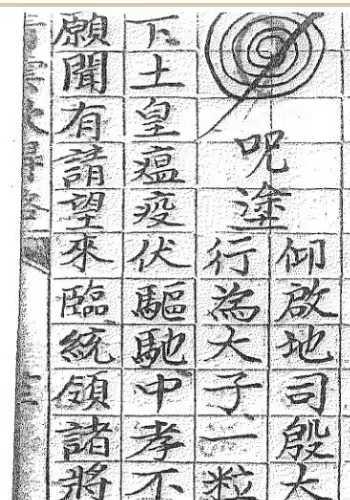 呪塗
仰啟地司殷太
行為大子一粒
下土皇瘟疫伏驅馳中孝不
願聞有請望來臨統領諸將